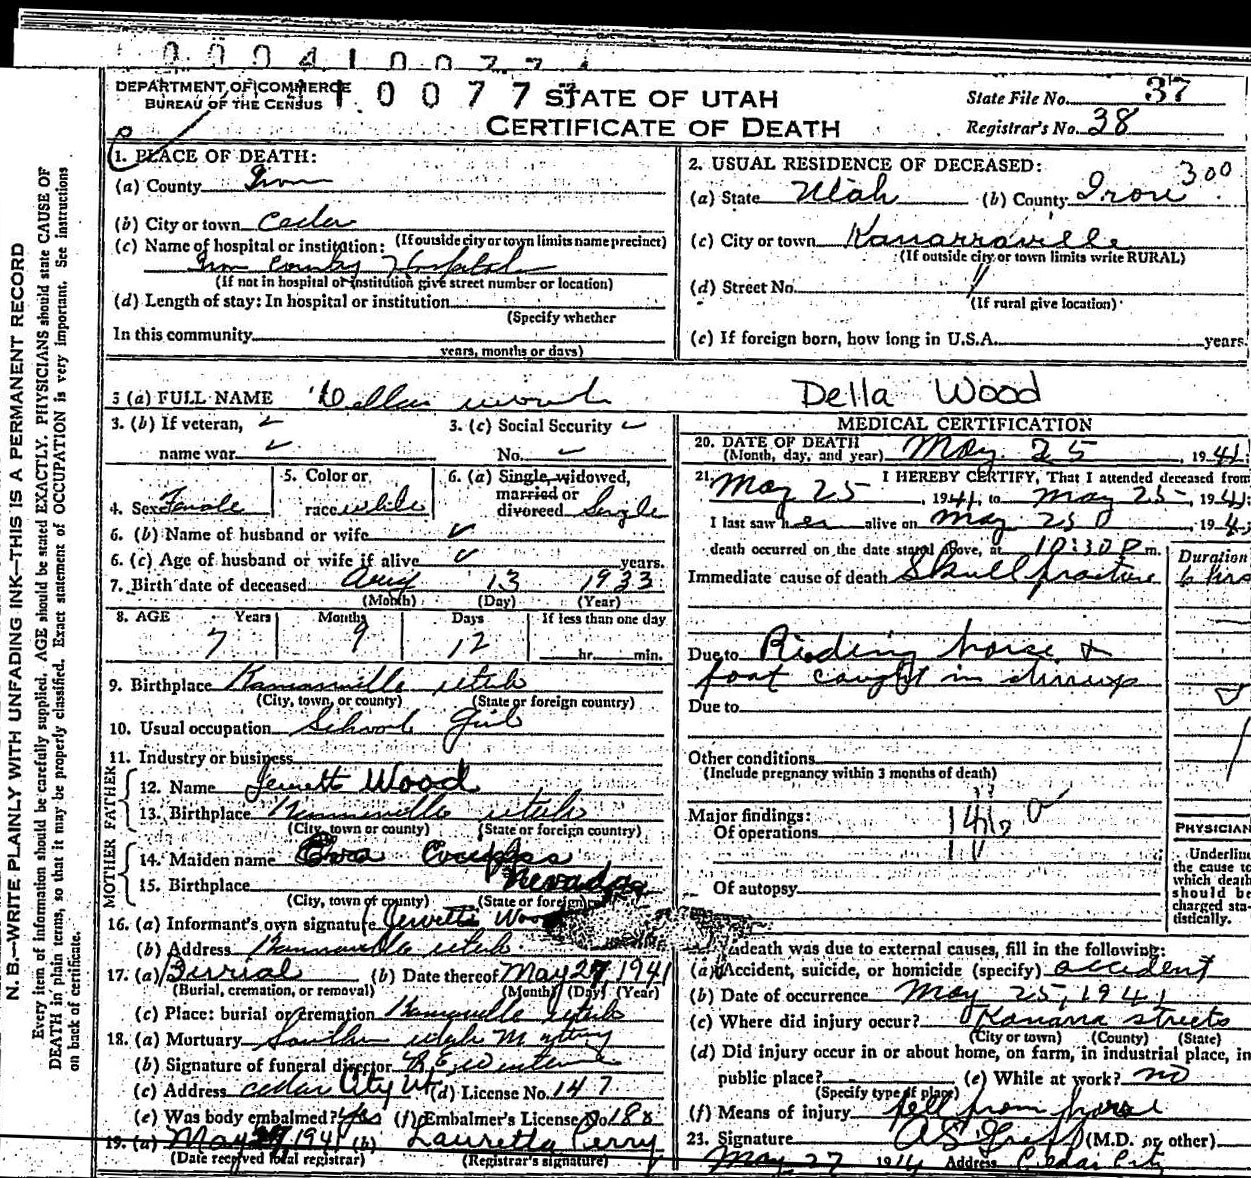 DEPARTMENT OF COMMERCE
BUREAU OF THE CENSUS
STATE OF UTAH
CERTIFICATE OF DEATH
State File No. 37
Registrar's No. 38
N. B.—WRITE PLAINLY WITH UNFADING INK—THIS IS A PERMANENT RECORD
Every item of information should be carefully supplied. AGE should be stated EXACTLY. PHYSICIANS should state CAUSE OF
DEATH in plain terms, so that it may be properly classified. Exact statement of OCCUPATION is very important. See instructions
on back of certificate.
1. PLACE OF DEATH:
(a) County Iron
(b) City or town Cedar
(If outside city or town limits name precinct)
(c) Name of hospital or institution:
Iron County Hospital
(If not in hospital or institution give street number or location)
(d) Length of stay: In hospital or institution
(Specify whether
In this community
years, months or days)
2. USUAL RESIDENCE OF DECEASED:
300
(a) State Utah (b) County Iron
(c) City or town Kanarraville
(If outside city or town limits write RURAL)
(d) Street No. "
(If rural give location)
(e) If foreign born, how long in U.S.A. years.
3 (a) FULL NAME Della Wood
Della Wood
3. (b) If veteran, name war
3. (c) Social Security No.
4. Sex Female
5. Color or race white
6. (a) Single, widowed, married or divorced Single
6. (b) Name of husband or wife
6. (c) Age of husband or wife if alive years.
7. Birth date of deceased Aug 13 1933
(Month) (Day) (Year)
8. AGE Years Months Days If less than one day
7 9 12 hr. min.
9. Birthplace Kanarraville Utah
(City, town, or county) (State or foreign country)
10. Usual occupation School Girl
11. Industry or business
FATHER
12. Name Jewett Wood
13. Birthplace Kanarraville Utah
(City, town or county) (State or foreign country)
MOTHER
14. Maiden name
15. Birthplace Nevada
(City, town or county) (State or foreign
16. (a) Informant's own signature Jewett Wood
(b) Address Kanarraville Utah
17. (a) Burrial (b) Date thereof May 27, 1941
(Burial, cremation, or removal) (Month) (Day) (Year)
(c) Place: burial or cremation Kanarraville Utah
18. (a) Mortuary Southern Utah Mortuary
(b) Signature of funeral director
(c) Address Cedar City Ut. (d) License No. 147
(e) Was body embalmed? yes (f) Embalmer's License No. 188
19. (a) May 1941 (b) Lauretta Perry
(Date received local registrar) (Registrar's signature)
MEDICAL CERTIFICATION
20. DATE OF DEATH
(Month, day, and year) May 25, 1941
21. I HEREBY CERTIFY, That I attended deceased from
May 25, 1941, to May 25, 1941;
I last saw her alive on May 25, 194
death occurred on the date stated above, at 10:30 P m.
Duration
Immediate cause of death Skull fracture 6 hrs
Due to Rieding horse &
foot caught in stirrup
Due to
Other conditions
(Include pregnancy within 3 months of death)
Major findings:
Of operations
Of autopsy
PHYSICIAN
Underline
the cause to
which death
should be
charged sta-
tistically.
death was due to external causes, fill in the following:
(a) Accident, suicide, or homicide (specify) accident
(b) Date of occurrence May 25, 1941
(c) Where did injury occur? Kanarra streets
(City or town) (County) (State)
(d) Did injury occur in or about home, on farm, in industrial place, in
public place? (e) While at work? no
(Specify type of place)
(f) Means of injury fell from horse
23. Signature (M.D. or other)
May 27 1941 Address Cedar City